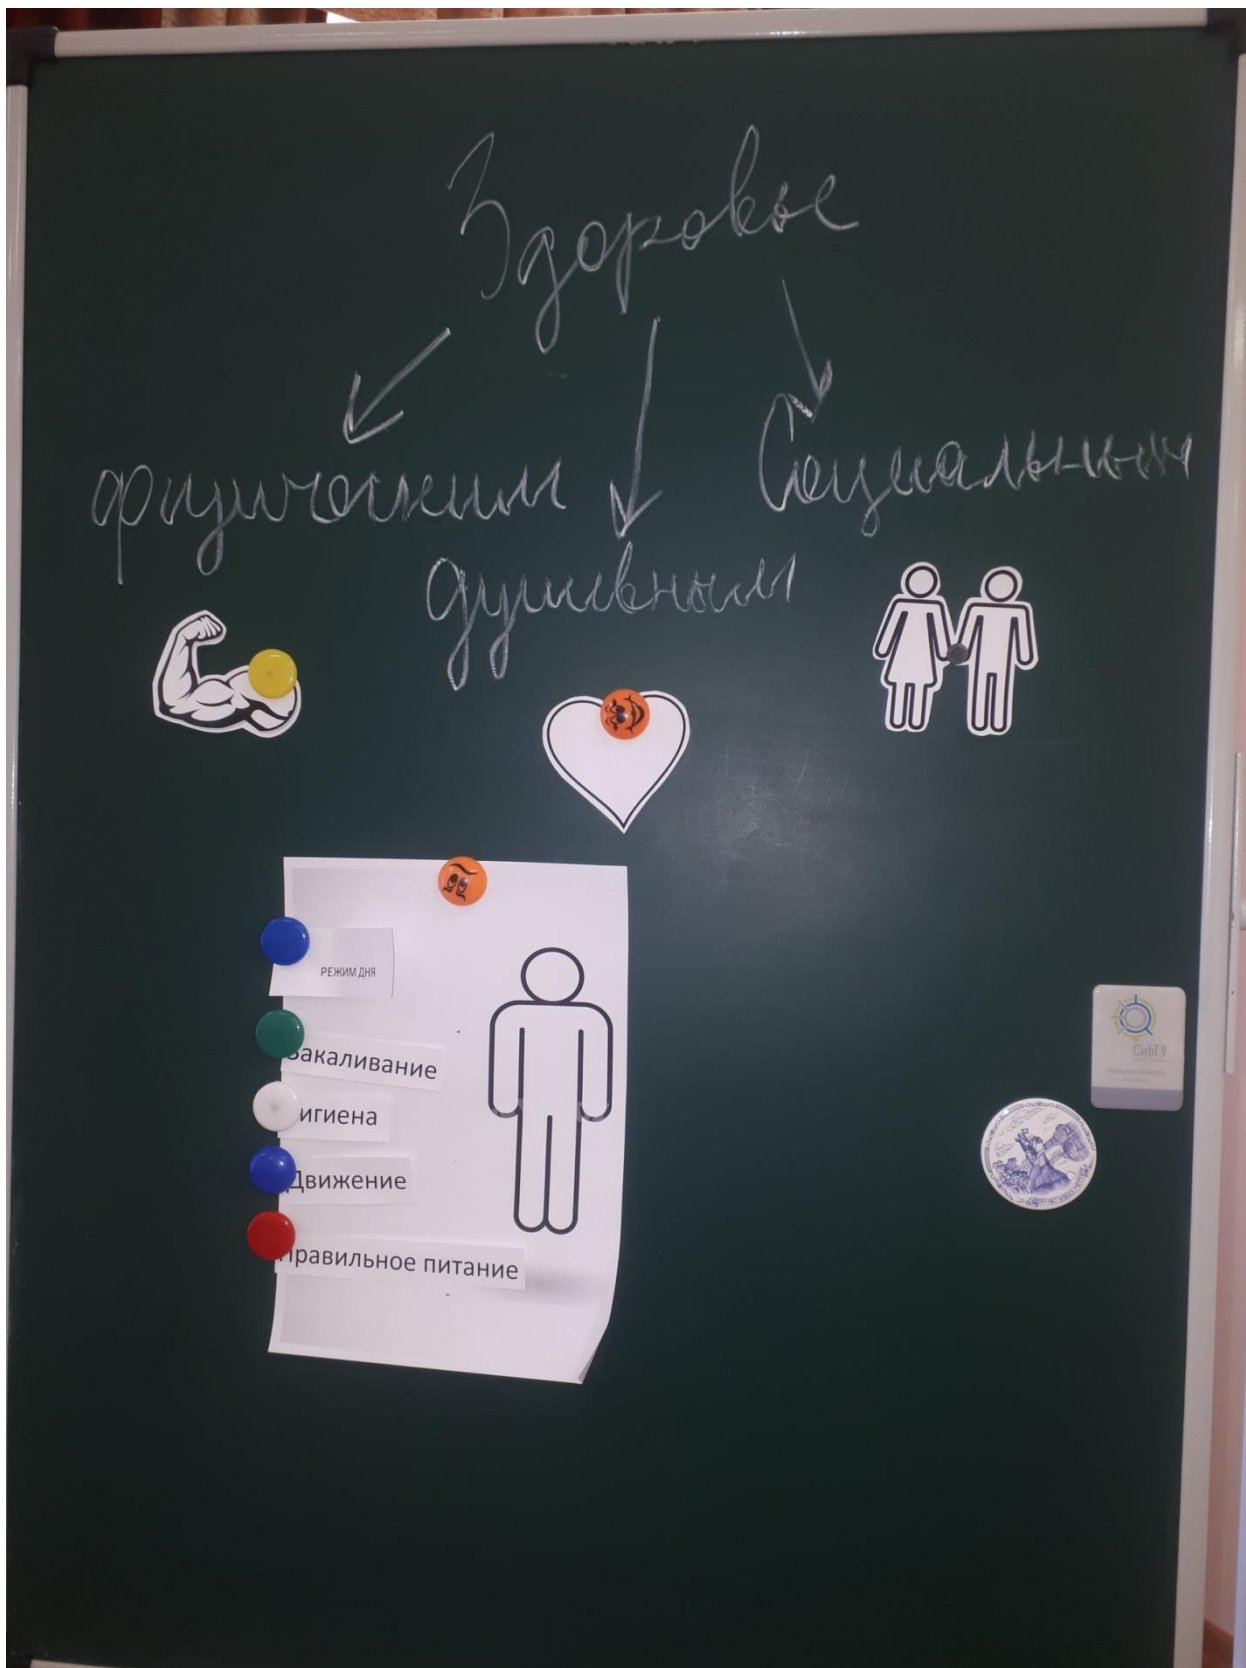 Здоровье
физическим
Социальным
душевным
РЕЖИМ ДНЯ
Закаливание
игиена
Движение
Правильное питание
СибГУ